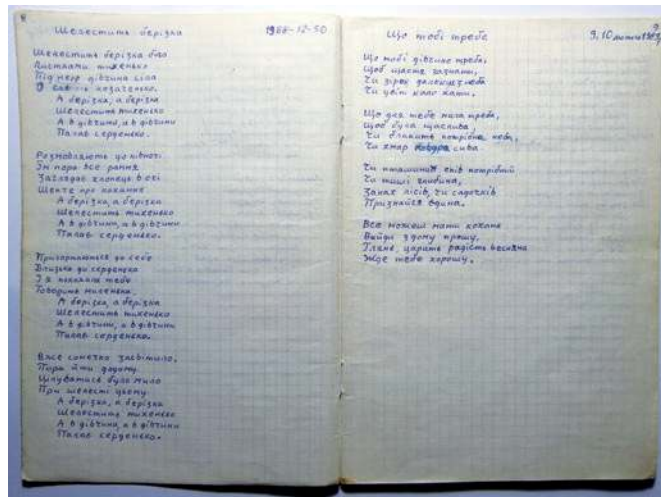 8
Шелестить берізка 1966-12-30
Шелестить берізка біло
Листками тихенько
Під нею дівчина сіла
О сів козаченько.
А берізка, а берізка
Шелестить тихенько
А в дівчини, а в дівчини
Палає серденько.
Розмовляють до півночі
Їм пора все рання
Заглядає хлопець в очі
Шепче про кохання
А берізка, а берізка
Шелестить тихенько
А в дівчини, а в дівчини
Палає серденько.
Пригортаються до себе
Близько до серденька
І я покохала тебе
Говорить миленька.
А берізка, а берізка
Шелестить тихенько
А в дівчини, а в дівчини
Палає серденько.
Вже сонечко засвітило,
Пора йти додому
Цілуватись було мило
При шелесті цьому
А берізка, а берізка
Шелестить тихенько
А в дівчини, а в дівчини
Палає серденько.
9
Що тобі треба 9,10 лютого
Що тобі дівчино треба,
Щоб щастя зазнати,
Чи зірок далеких з неба
Чи цвіт коло хати.
Що для тебе нига треба,
Щоб була щаслива,
Чи блакить потрібна неба,
Чи хмар ковдра сива.
Чи пташиний спів потрібний
Чи тиші глибина,
Запах лісів, чи садочків
Признайся єдина.
Все можеш мати кохана
Вийди з дому прошу,
Глянь, царить радість весняна
Жде тебе хорошу.